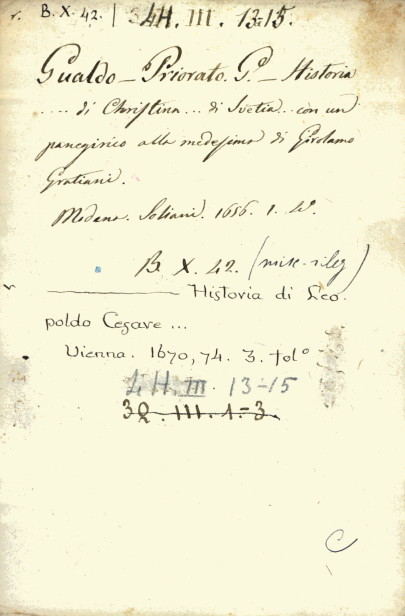 r. B. X. 42. / 4H. III. 13-15.
Gualdo - Priorato. G. - Historia
.... di Christina ... di Svetia .. con un
panegirico alla medesima di Girolamo
Gratiani.
Modena. Soliani. 1656. 1. 4º.
B. X. 42. (misc. rileg)
Historia di Leo.
poldo Cesare ...
Vienna. 1670, 74. 3. folº
4 H. III. 13-15
3Q. III. 1-3.
C